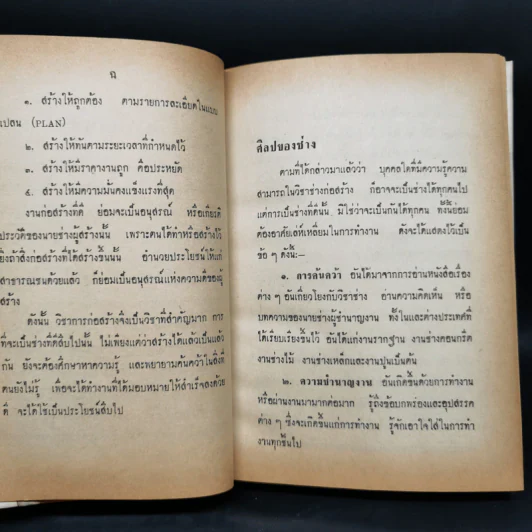 ฉ
๑. สร้างให้ถูกต้อง ตามรายการละเอียดในแบบ
แปลน (PLAN)
๒. สร้างให้ทันตามระยะเวลาที่กำหนดไว้
๓. สร้างให้มีราคางานถูก คือประหยัด
๔. สร้างให้มีความมั่นคงแข็งแรงที่สุด
งานก่อสร้างที่ดี ย่อมจะเป็นอนุสรณ์ หรือเกียรติ
ประวัติของนายช่างผู้สร้างนั้น เพราะตนได้ทำหรือสร้างไว้
ยิ่งถ้าสิ่งก่อสร้างที่ได้สร้างขึ้นนั้น อำนวยประโยชน์ให้แก่
สาธารณชนด้วยแล้ว ก็ย่อมเป็นอนุสรณ์แห่งความดีของผู้
สร้าง
ดังนั้น วิชาการก่อสร้างจึงเป็นวิชาที่สำคัญมาก การ
ที่จะเป็นช่างที่ดีสืบไปนั้น ไม่เพียงแต่ว่าสร้างได้แล้วเป็นแล้ว
กัน ยังจะต้องศึกษาหาความรู้ และพยายามค้นคว้าในสิ่งที่
ตนยังไม่รู้ เพื่อจะได้ทำงานที่ได้มอบหมายให้สำเร็จลงด้วย
ดี จะได้ใช้เป็นประโยชน์สืบไป
ศิลปของช่าง
ตามที่ได้กล่าวมาแล้วว่า บุคคลใดที่มีความรู้ความ
สามารถในวิชาช่างก่อสร้าง ก็อาจจะเป็นช่างได้ทุกคนไป
แต่การเป็นช่างที่ดีนั้น มิใช่ว่าจะเป็นกันได้ทุกคน ทั้งนี้ย่อม
ต้องอาศัยเล่ห์เหลี่ยมในการทำงาน ดังจะได้แสดงไว้เป็น
ข้อ ๆ ดังนี้:-
๑. การค้นคว้า อันได้มาจากการอ่านหนังสือเรื่อง
ต่าง ๆ อันเกี่ยวโยงกับวิชาช่าง อ่านความคิดเห็น หรือ
บทความของนายช่างผู้ชำนาญงาน ทั้งในและต่างประเทศที่
ได้เรียบเรียงขึ้นไว้ อันได้แก่งานรากฐาน งานช่างคอนกรีต
งานช่างไม้ งานช่างเหล็กและงานปูนเป็นต้น
๒. ความชำนาญงาน อันเกิดขึ้นด้วยการทำงาน
หรือผ่านงานมามากต่อมาก รู้ถึงข้อบกพร่องและอุปสรรค
ต่าง ๆ ซึ่งจะเกิดขึ้นแก่การทำงาน รู้จักเอาใจใส่ในการทำ
งานทุกชิ้นไป